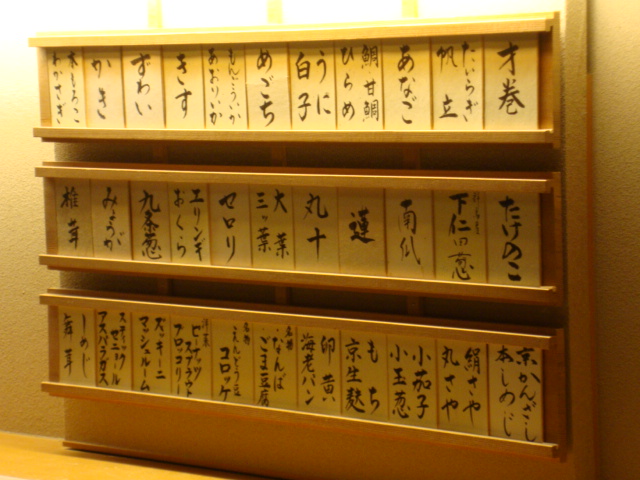 才巻
たいらぎ
帆立
あなご
鯛・甘鯛
ひらめ
うに
白子
めごち
もんごういか
あおりいか
きす
ずわい
かき
本もろこ
わかさぎ
たけのこ
下仁田葱
南瓜
蓮
丸十
大葉
三ッ葉
セロリ
エリンギ
おくら
九条葱
みょうが
椎茸
京かんざし
本しめじ
絹さや
丸さや
小茄子
小玉葱
もち
京生麩
卵黄
海老パン
名物
なんば
ごま豆腐
名物
えんどう豆
コロッケ
ピーナッツ
スプラウト
ブロッコリー
ズッキーニ
マッシュルーム
スティック
セニョール
アスパラガス
しめじ
舞茸